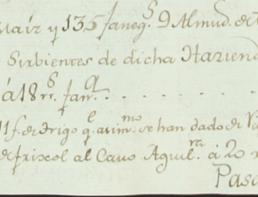 Maíz y 135 faneg.s 9 Almud.
Sirbientes de dicha Hazien
á 18 r.s fan.a
11 f. de trigo q.e asim.mo se han dado de
de frixol al Cavo Aguil.ra á 20 r
Pasa